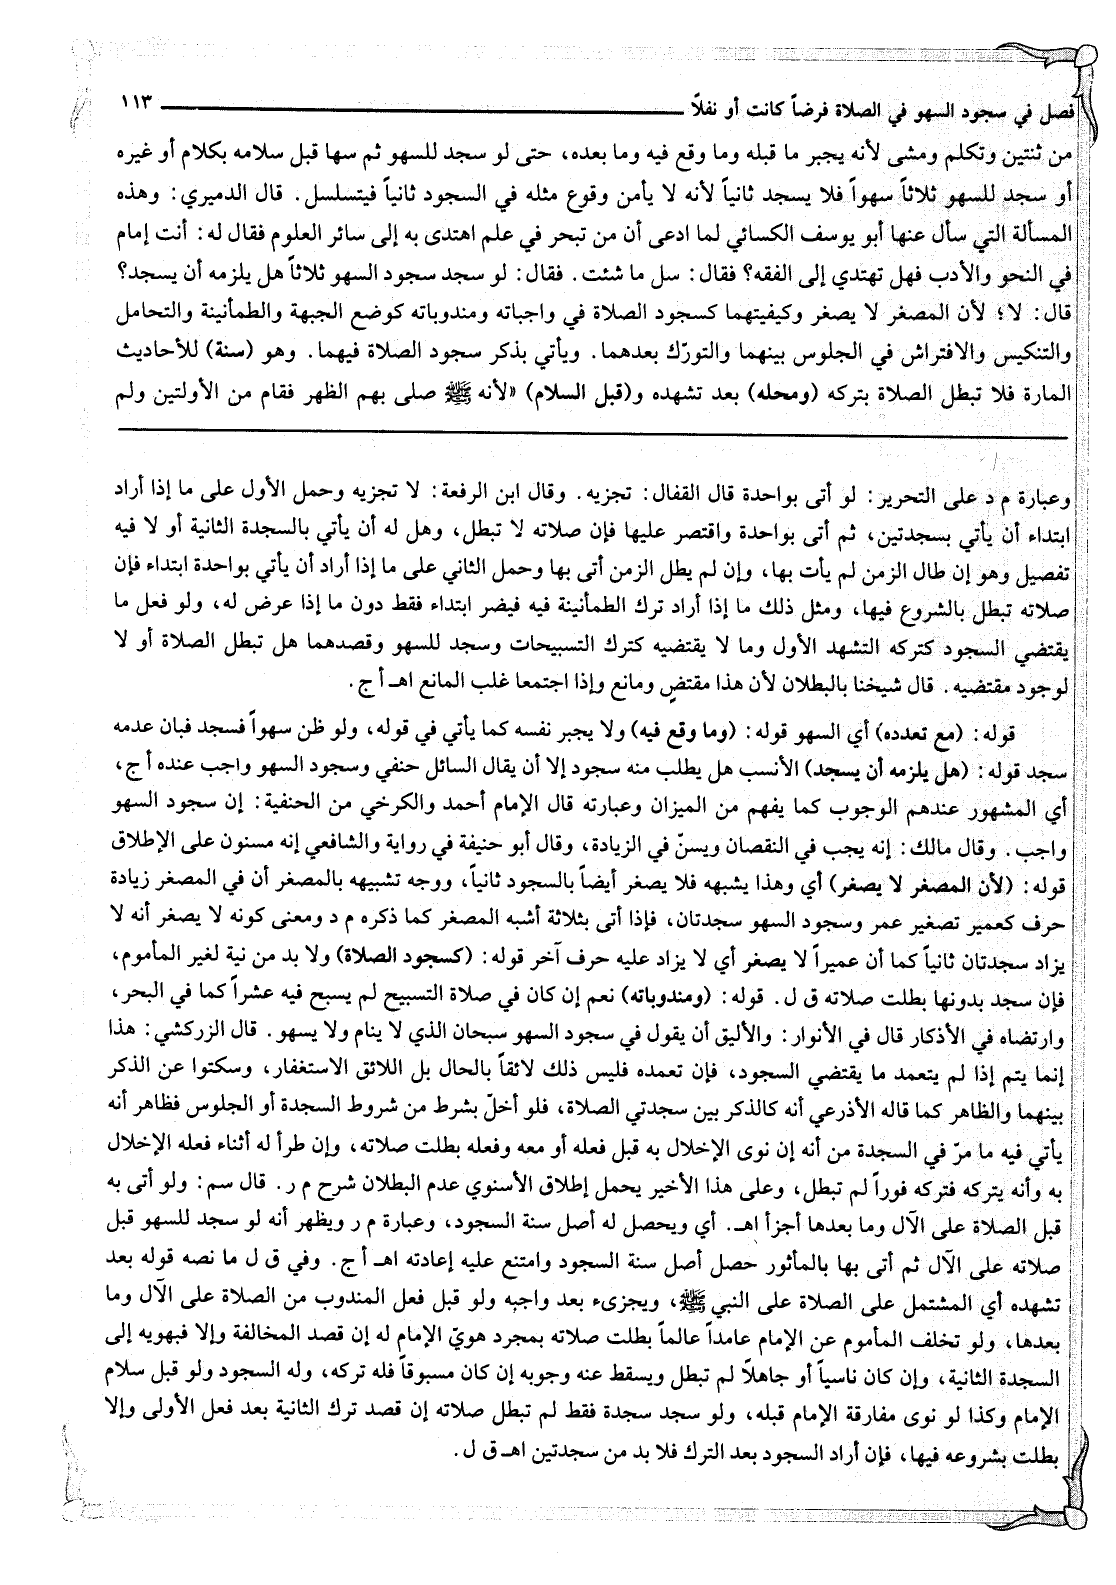 فصل في سجود السهو في الصلاة فرضاً كانت أو نفلاً ١١٣
من ثنتين وتكلم ومشى لأنه يجبر ما قبله وما وقع فيه وما بعده، حتى لو سجد للسهو ثم سها قبل سلامه بكلام أو غيره
أو سجد للسهو ثلاثاً سهواً فلا يسجد ثانياً لأنه لا يأمن وقوع مثله في السجود ثانياً فيتسلسل. قال الدميري: وهذه
المسألة التي سأل عنها أبو يوسف الكسائي لما ادعى أن من تبحر في علم اهتدى به إلى سائر العلوم فقال له: أنت إمام
في النحو والأدب فهل تهتدي إلى الفقه؟ فقال: سل ما شئت. فقال: لو سجد سجود السهو ثلاثاً هل يلزمه أن يسجد؟
قال: لا؛ لأن المصغر لا يصغر وكيفيتهما كسجود الصلاة في واجباته ومندوباته كوضع الجبهة والطمأنينة والتحامل
والتنكيس والافتراش في الجلوس بينهما والتورّك بعدهما. ويأتي بذكر سجود الصلاة فيهما. وهو (سنة) للأحاديث
المارة فلا تبطل الصلاة بتركه (ومحله) بعد تشهده و(قبل السلام) «لأنه ﷺ صلى بهم الظهر فقام من الأولتين ولم
وعبارة م د على التحرير: لو أتى بواحدة قال القفال: تجزيه. وقال ابن الرفعة: لا تجزيه وحمل الأول على ما إذا أراد
ابتداء أن يأتي بسجدتين، ثم أتى بواحدة واقتصر عليها فإن صلاته لا تبطل، وهل له أن يأتي بالسجدة الثانية أو لا فيه
تفصيل وهو إن طال الزمن لم يأت بها، وإن لم يطل الزمن أتى بها وحمل الثاني على ما إذا أراد أن يأتي بواحدة ابتداء فإن
صلاته تبطل بالشروع فيها، ومثل ذلك ما إذا أراد ترك الطمأنينة فيه فيضر ابتداء فقط دون ما إذا عرض له، ولو فعل ما
يقتضي السجود كتركه التشهد الأول وما لا يقتضيه كترك التسبيحات وسجد للسهو وقصدهما هل تبطل الصلاة أو لا
لوجود مقتضيه. قال شيخنا بالبطلان لأن هذا مقتضٍ ومانع وإذا اجتمعا غلب المانع اهـ أ ج.
قوله: (مع تعدده) أي السهو قوله: (وما وقع فيه) ولا يجبر نفسه كما يأتي في قوله، ولو ظن سهواً فسجد فبان عدمه
سجد قوله: (هل يلزمه أن يسجد) الأنسب هل يطلب منه سجود إلا أن يقال السائل حنفي وسجود السهو واجب عنده أ ج،
أي المشهور عندهم الوجوب كما يفهم من الميزان وعبارته قال الإمام أحمد والكرخي من الحنفية: إن سجود السهو
واجب. وقال مالك: إنه يجب في النقصان ويسنّ في الزيادة، وقال أبو حنيفة في رواية والشافعي إنه مسنون على الإطلاق
قوله: (لأن المصغر لا يصغر) أي وهذا يشبهه فلا يصغر أيضاً بالسجود ثانياً، ووجه تشبيهه بالمصغر أن في المصغر زيادة
حرف كعمير تصغير عمر وسجود السهو سجدتان، فإذا أتى بثلاثة أشبه المصغر كما ذكره م د ومعنى كونه لا يصغر أنه لا
يزاد سجدتان ثانياً كما أن عميراً لا يصغر أي لا يزاد عليه حرف آخر قوله: (كسجود الصلاة) ولا بد من نية لغير المأموم،
فإن سجد بدونها بطلت صلاته ق ل. قوله: (ومندوباته) نعم إن كان في صلاة التسبيح لم يسبح فيه عشراً كما في البحر،
وارتضاه في الأذكار قال في الأنوار: والأليق أن يقول في سجود السهو سبحان الذي لا ينام ولا يسهو. قال الزركشي: هذا
إنما يتم إذا لم يتعمد ما يقتضي السجود، فإن تعمده فليس ذلك لائقاً بالحال بل اللائق الاستغفار، وسكتوا عن الذكر
بينهما والظاهر كما قاله الأذرعي أنه كالذكر بين سجدتي الصلاة، فلو أخلّ بشرط من شروط السجدة أو الجلوس فظاهر أنه
يأتي فيه ما مرّ في السجدة من أنه إن نوى الإخلال به قبل فعله أو معه وفعله بطلت صلاته، وإن طرأ له أثناء فعله الإخلال
به وأنه يتركه فتركه فوراً لم تبطل، وعلى هذا الأخير يحمل إطلاق الأسنوي عدم البطلان شرح م ر. قال سم: ولو أتى به
قبل الصلاة على الآل وما بعدها أجزأ اهـ. أي ويحصل له أصل سنة السجود، وعبارة م ر ويظهر أنه لو سجد للسهو قبل
صلاته على الآل ثم أتى بها بالمأثور حصل أصل سنة السجود وامتنع عليه إعادته اهـ أ ج. وفي ق ل ما نصه قوله بعد
تشهده أي المشتمل على الصلاة على النبي ﷺ، ويجزىء بعد واجبه ولو قبل فعل المندوب من الصلاة على الآل وما
بعدها، ولو تخلف المأموم عن الإمام عامداً عالماً بطلت صلاته بمجرد هويّ الإمام له إن قصد المخالفة وإلا فبهويه إلى
السجدة الثانية، وإن كان ناسياً أو جاهلاً لم تبطل ويسقط عنه وجوبه إن كان مسبوقاً فله تركه، وله السجود ولو قبل سلام
الإمام وكذا لو نوى مفارقة الإمام قبله، ولو سجد سجدة فقط لم تبطل صلاته إن قصد ترك الثانية بعد فعل الأولى وإلا
بطلت بشروعه فيها، فإن أراد السجود بعد الترك فلا بد من سجدتين اهـ ق ل.